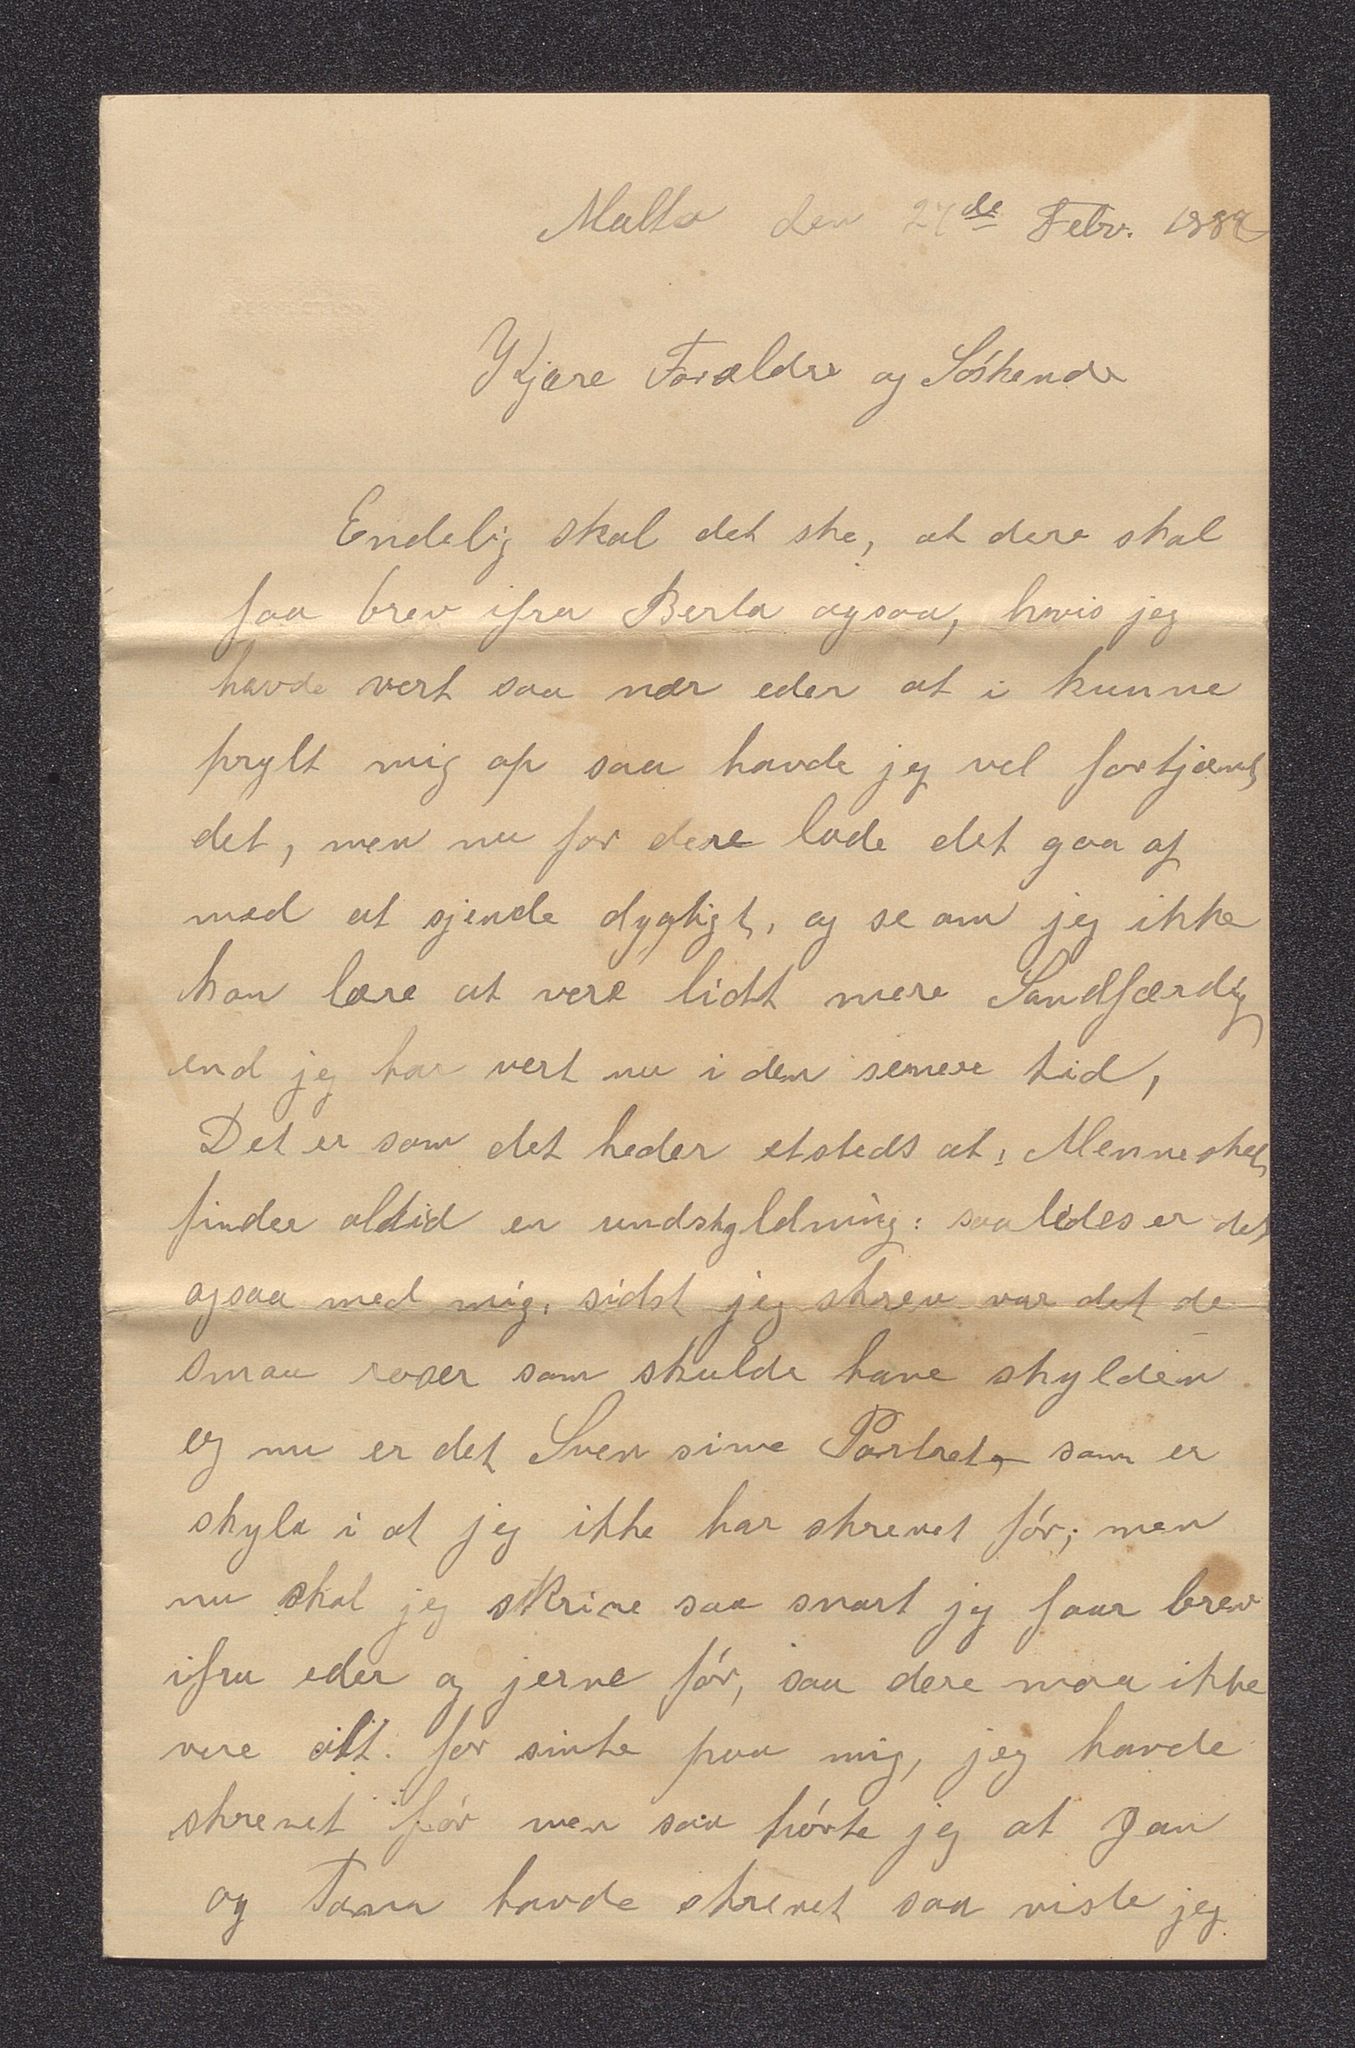 Malta den 24de Febr. 1889
Kjære Forældre og Söskende
Endelig skal det ske, at dere skal
faa brev ifra Berta ogsaa, hvis jeg
havde vert saa nær eder at i kunne
prylt mig op saa havde jeg vel fortjænt
det, men nu for dere lade det gaa af
med at sjende dygtigt, og se om jeg ikke
kan lære at vere lidt mere Sandfærdig
end jeg har vert nu i den senere tid,
Det er som det heder etsteds at: Mennesket
finder altid en undskyldning: saaledes er det
ogsaa med mig, sidst jeg skrev var det de
smaa roser som skulde have skylden
og nu er det Sven sine Portret, som er
skyld i at jeg ikke har skrevet för; men
nu skal jeg skrive saa snart jeg faar brev
ifra eder og jerne för, saa dere maa ikke
vere alt for sinte paa mig, jeg havde
skrevet för men saa hörte jeg at Jan
og Tam havde skrevet saa viste jeg